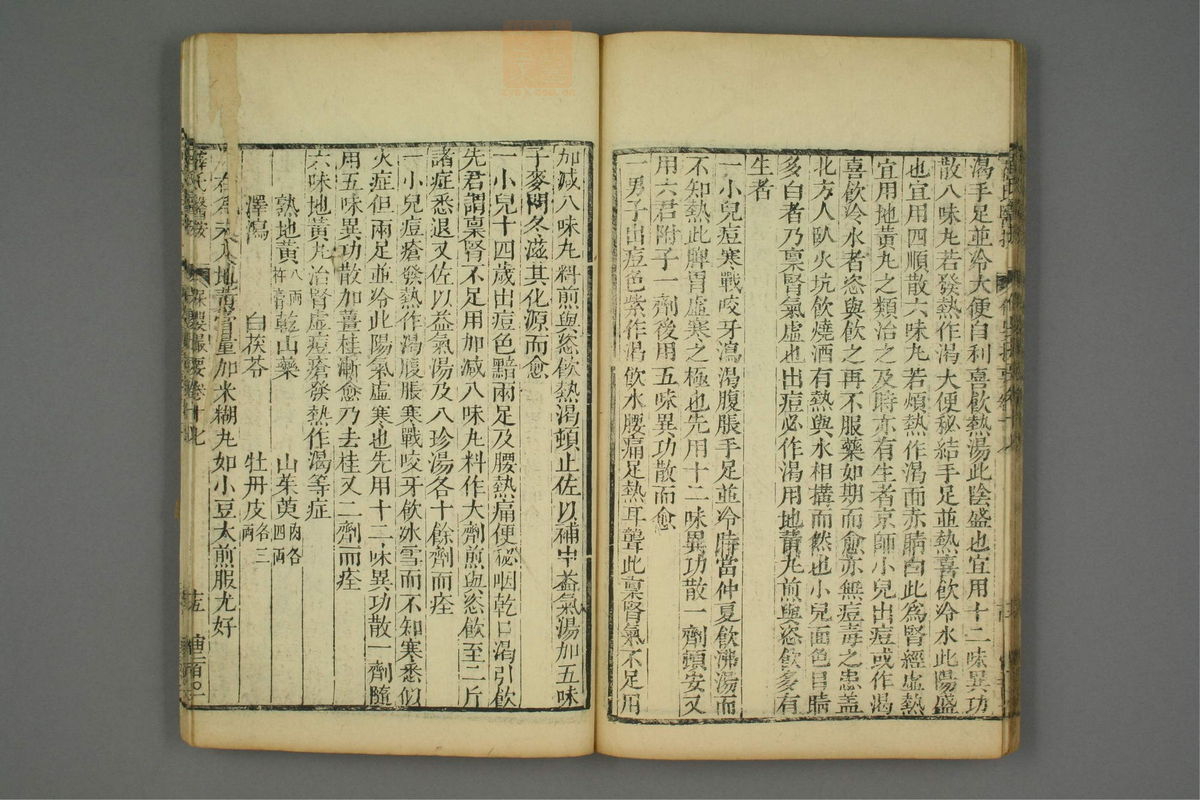 渴手足並冷大便自利喜飲熱湯此陰盛也宜用十二味異功
散八味丸若發熱作渴大便秘結手足並熱喜飲冷水此陽盛
也宜用四順散六味丸若煩熱作渴面赤睛白此為腎經虛熱
宜用地黃丸之類治之及時亦有生者京師小兒出痘或作渴
喜飲冷水者恣與飲之再不服藥如期而愈亦無痘毒之患蓋
北方人臥火坑飲燒酒有熱與水相搆而然也小兒面色目睛
多白者乃稟腎氣虛也出痘必作渴用地黃丸煎與恣飲多有
生者
一小兒痘寒戰咬牙瀉渴腹脹手足並冷時當仲夏飲沸湯而
不知熱此脾胃虛寒之極也先用十二味異功散一劑頓安又
用六君附子一劑後用五味異功散而愈
一男子出痘色紫作渴飲水腰痛足熱耳聾此稟腎氣不足用
加減八味丸料煎與恣飲熱渴頓止佐以補中益氣湯加五味
子麥門冬滋其化源而愈
一小兒十四歲出痘色黯兩足及腰熱痛便秘咽乾口渴引飲
先君謂稟腎不足用加減八味丸料作大劑煎與恣飲至二斤
諸症悉退又佐以益氣湯及八珍湯各十餘劑而痊
一小兒痘瘡發熱作渴腹脹寒戰咬牙飲冰雪而不知寒悉似
火症但兩足並冷此陽氣虛寒也先用十二味異功散一劑隨
用五味異功散加薑桂漸愈乃去桂又二劑而痊
六味地黃丸治腎虛痘瘡發熱作渴等症
熟地黃八兩杵膏乾山藥 山茱萸肉各四兩
澤瀉 白茯苓 牡丹皮各三兩
右為末入地黃膏量加米糊丸如小豆大煎服尤好
薛氏醫按 保嬰撮要卷十七 十五